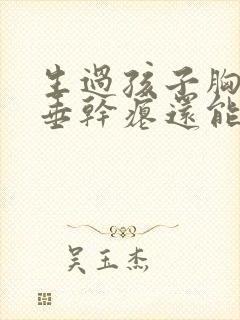 生過孩子胸
垂幹癟還能
吴玉杰